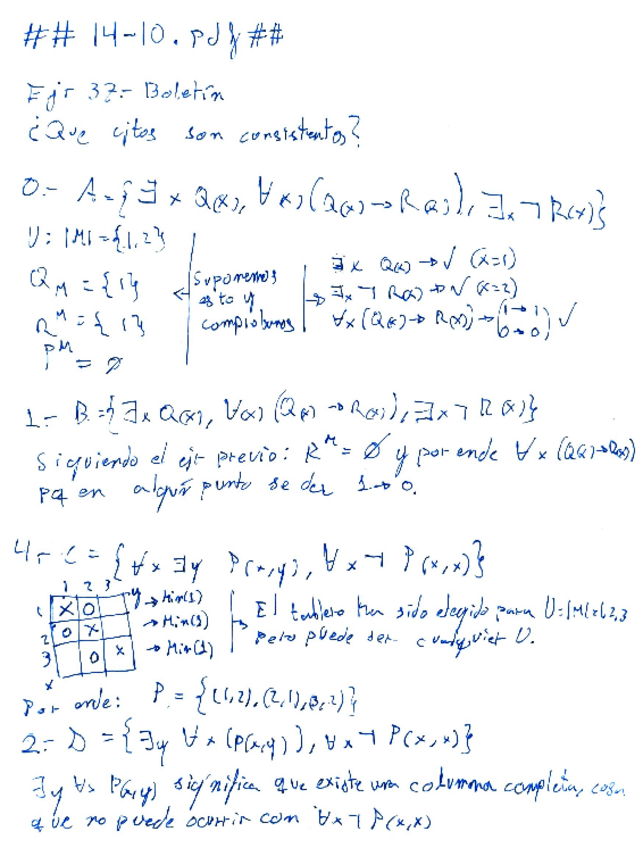 ## 14-10.pdf ##
Ejr 37.- Boletín
¿Que cjtos son consistentes?
0.- A = {∃x Q(x), ∀(x)(Q(x) → R(x)), ∃x ¬R(x)}
U: |M| = {1,2}
Q_M = {1}
R^M = {1}
P^M = ∅
Suponemos
esto y
comprobamos
∃x Q(x) → √ (x=1)
∃x ¬ R(x) → √ (x=2)
∀x (Q(x) → R(x)) → (1→1 0→0) √
1.- B = {∃x Q(x), ∀(x) (Q(x) → R(x)), ∃x ¬ R(x)}
Siguiendo el ejr previo: R^M = ∅ y por ende ∀x (Q(x)→R(x))
pq en algún punto se der 1→0.
4.- C = {∀x ∃y P(x,y), ∀x ¬ P(x,x)}
1 2 3 y
1 X O → Min(1)
2 O X → Min(1)
3 O X → Min(1)
x
El tablero ha sido elegido para U=|M|=1,2,3
pero puede ser cualquier U.
Por ende: P = {(1,2),(2,1),(3,2)}
2.- D = {∃y ∀x (P(x,y)), ∀x ¬ P(x,x)}
∃y ∀x P(x,y) significa que existe una columna completa, cosa
que no puede ocurrir con ∀x ¬ P(x,x)